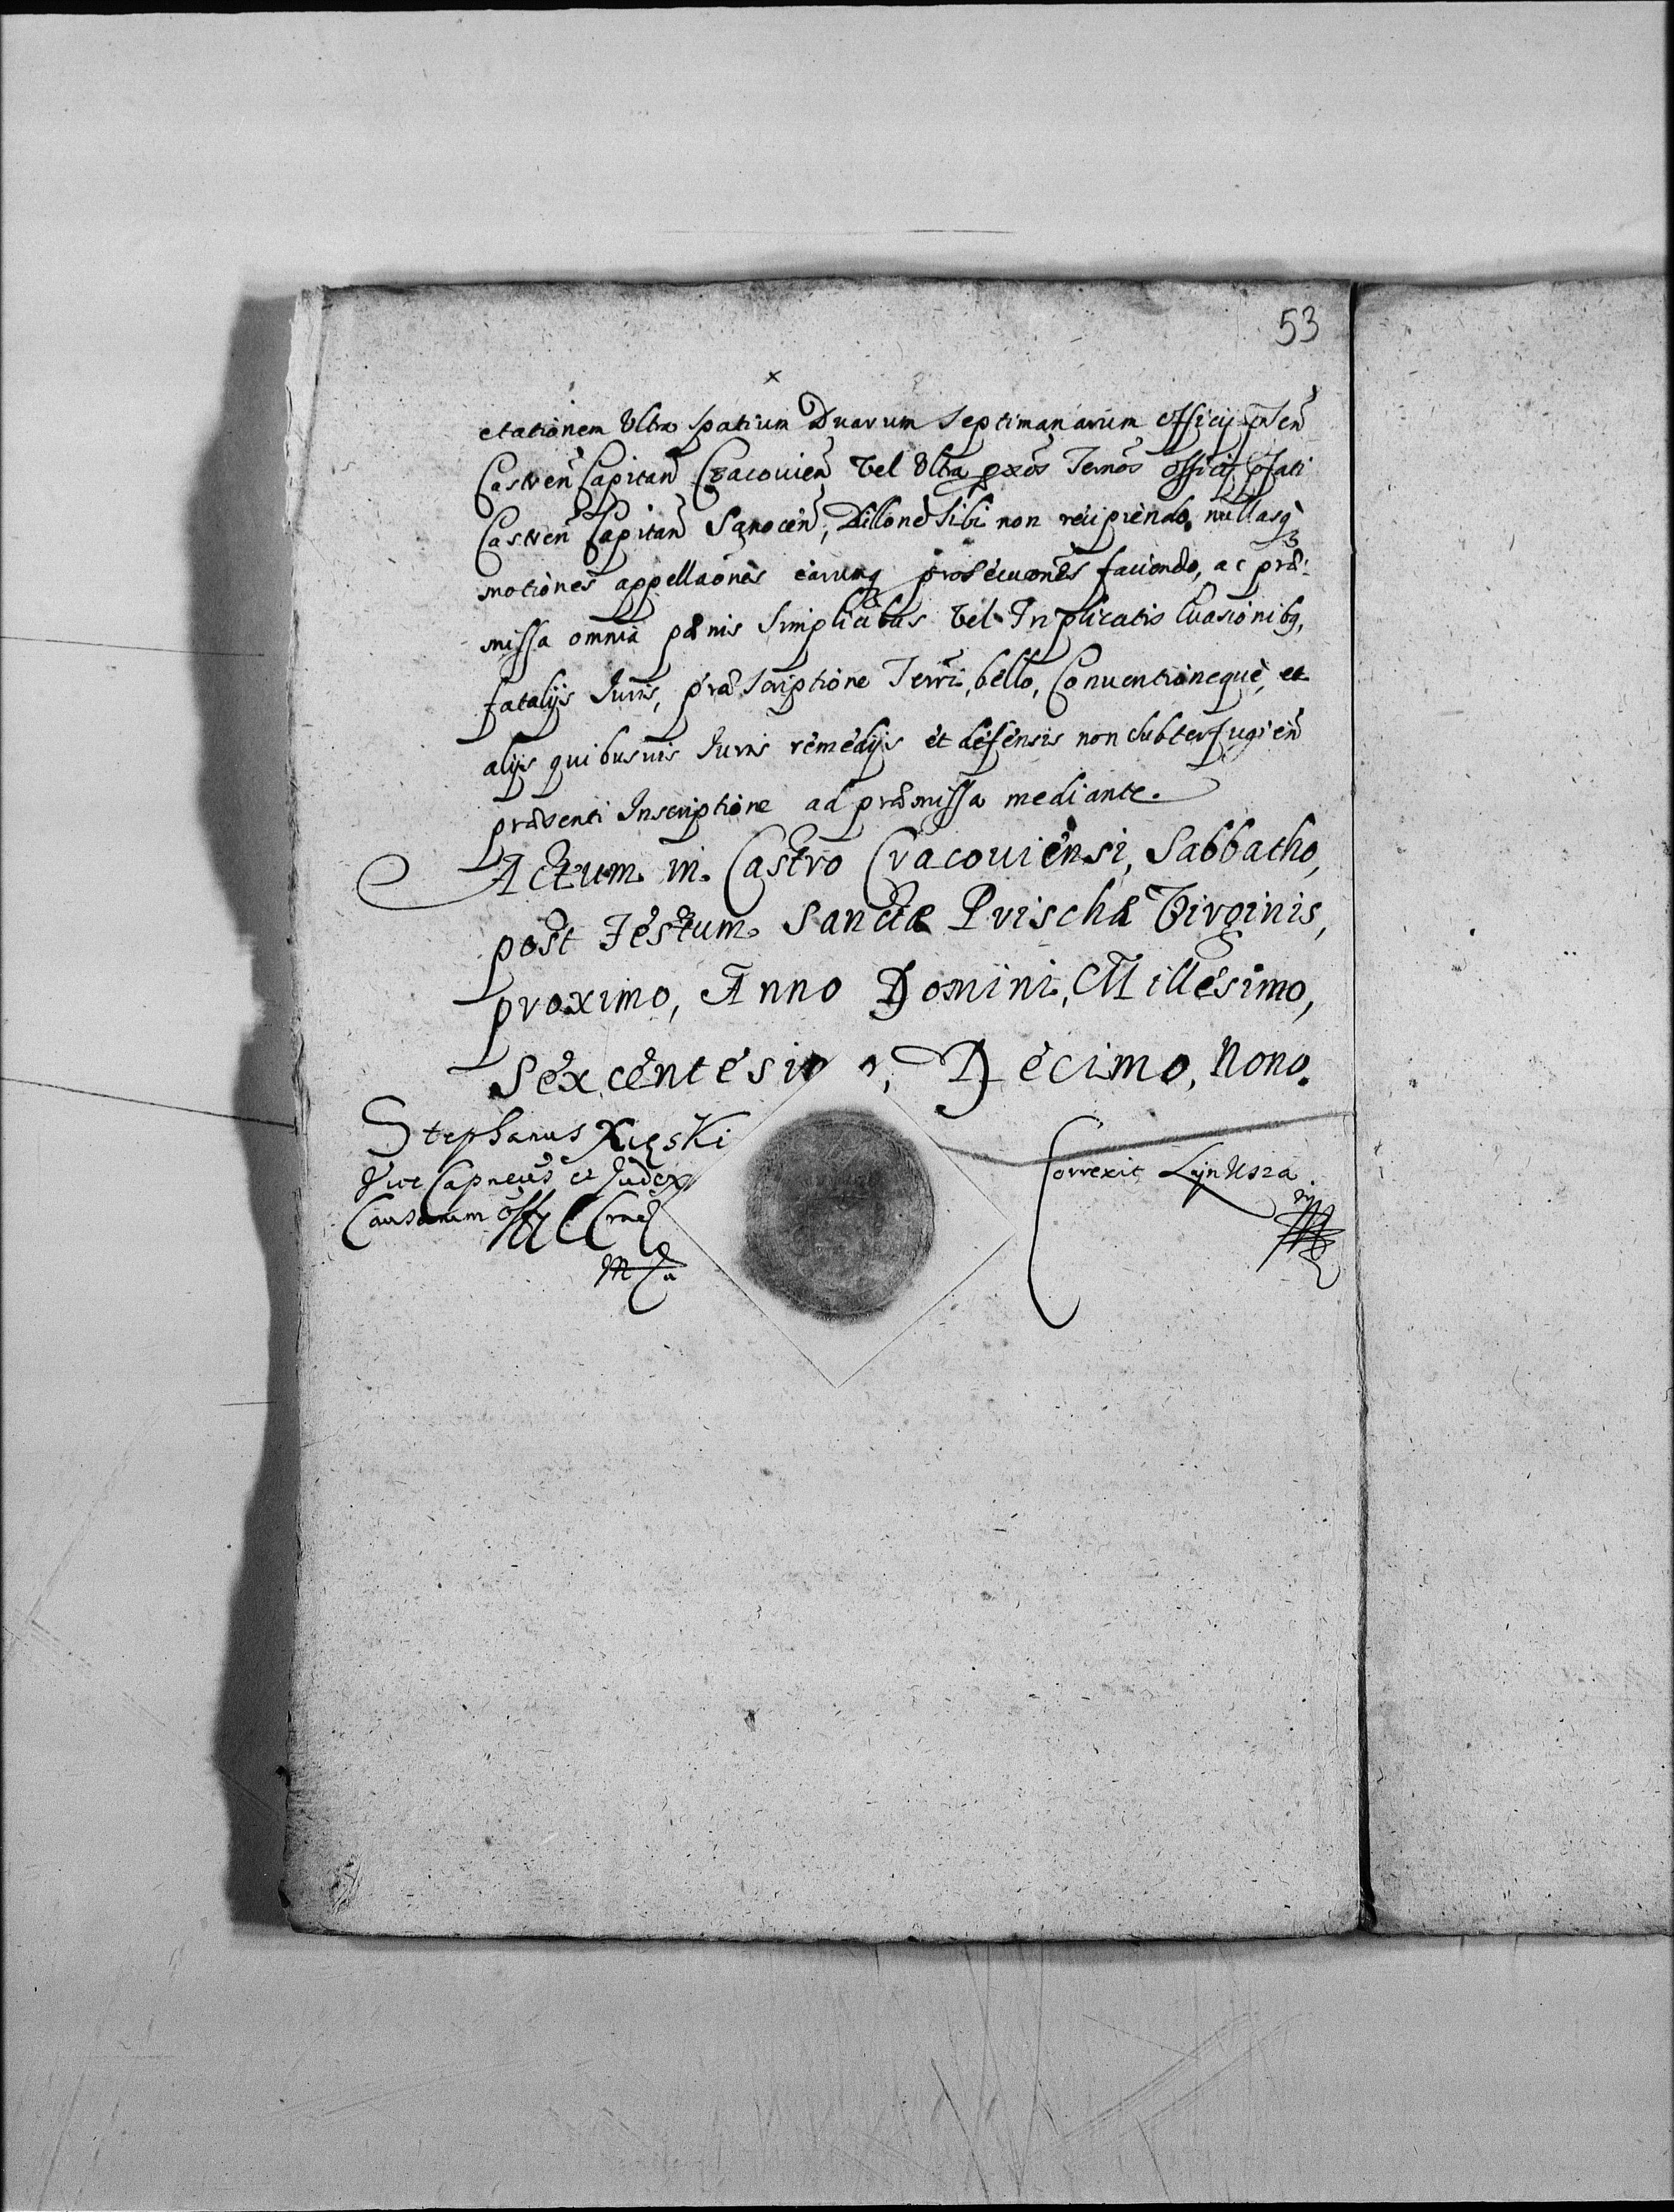 53
x
etationem Vltra spatium Duarum septimanarum officij pñsen̄
Castren̄ Capitan̄ Cracouien̄ Vel Vltra pxōs Termōs officij pfati
Castren̄ Capitan̄ Sanocen̄, Dillonē sibi non recipiendo, nullasq̃
motiones appellaōnes earumq prosecuōnes faciendo, ac præ:
missa omnia pænis simplicibus Vel Triplicatis Euasionibq,
fatalijs Iuris, præscriptione Terrī, bello, Conuentioneque, et
alijs quibusuis Iuris remedijs et defensis non subterfugien̄
præsenti Inscriptione ad præmissa mediante.
Actum in Castro Cracouiensi, Sabbatho,
post Festum Sanctæ Prischæ Virginis,
proximo, Anno Domini, Millesimo,
Sexcentesimo, Decimo, Nono.
Stephanus
Vice Capneus et Judex
Causarum off Crac
mpa
Correxit